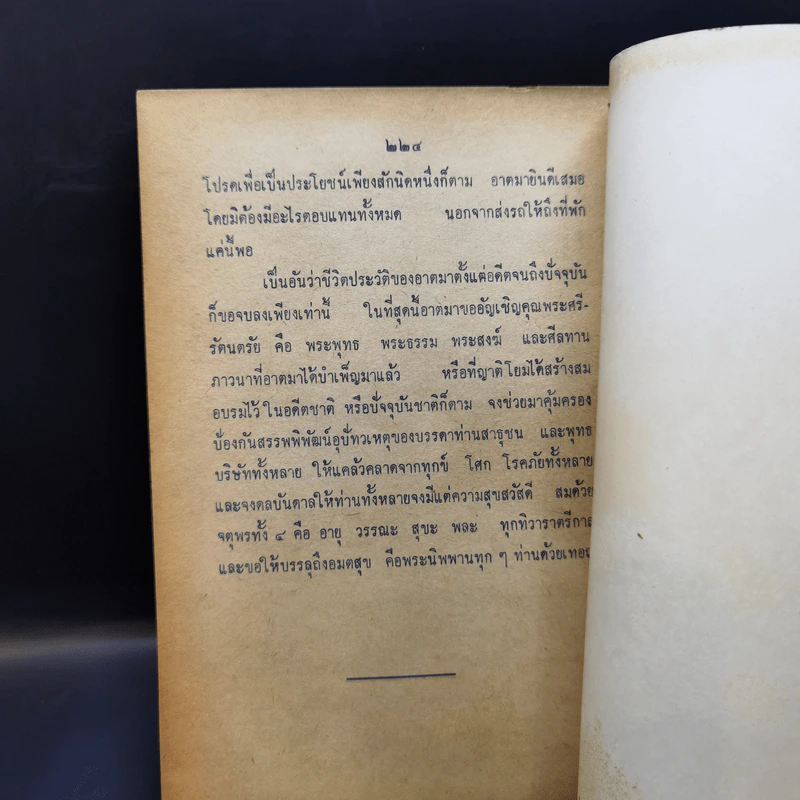 ๒๒๔
โปรดเพื่อเป็นประโยชน์เพียงสักนิดหนึ่งก็ตาม อาตมายินดีเสมอ
โดยมิต้องมีอะไรตอบแทนทั้งหมด นอกจากส่งรถให้ถึงที่พัก
แค่นี้พอ
เป็นอันว่าชีวิตประวัติของอาตมาตั้งแต่อดีตจนถึงปัจจุบัน
ก็ขอจบลงเพียงเท่านี้ ในที่สุดนี้อาตมาขออัญเชิญคุณพระศรี-
รัตนตรัย คือ พระพุทธ พระธรรม พระสงฆ์ และศีลทาน
ภาวนาที่อาตมาได้บำเพ็ญมาแล้ว หรือที่ญาติโยมได้สร้างสม
อบรมไว้ในอดีตชาติ หรือปัจจุบันชาติก็ตาม จงช่วยมาคุ้มครอง
ป้องกันสรรพพิพัฒน์อุปัทวเหตุของบรรดาท่านสาธุชน และพุทธ
บริษัททั้งหลาย ให้แคล้วคลาดจากทุกข์ โศก โรคภัยทั้งหลาย
และจงดลบันดาลให้ท่านทั้งหลายจงมีแต่ความสุขสวัสดี สมด้วย
จตุพรทั้ง ๔ คือ อายุ วรรณะ สุขะ พละ ทุกทิวาราตรีกาล
และขอให้บรรลุถึงอมตสุข คือพระนิพพานทุก ๆ ท่านด้วยเทอญ